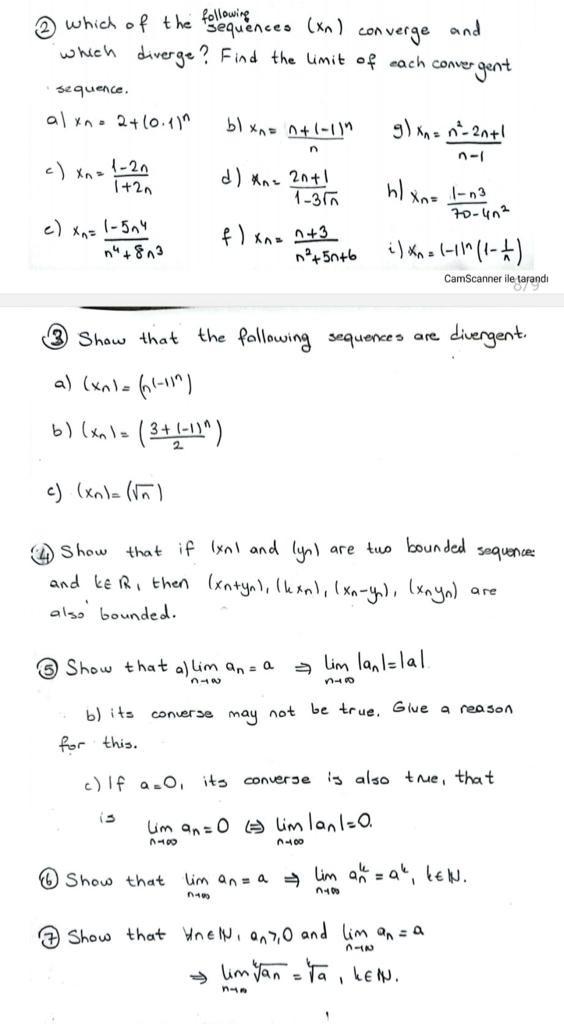 ② Which of the following sequences (xn) converge and
which diverge? Find the limit of each convergent
sequence.
a) xn = 2+(0.1)^n b) xn = (n+(-1)^n)/n g) xn = (n²-2n+1)/(n-1)
c) xn = (1-2n)/(1+2n) d) xn = (2n+1)/(1-3√n) h) xn = (1-n3)/(70-4n²)
e) xn = (1-5n⁴)/(n⁴+8n³) f) xn = (n+3)/(n²+5n+6) i) xn = (-1)^n (1-1/n)
CamScanner ile tarandı
8/9
③ Show that the following sequences are divergent.
a) (xn) = (n(-1)^n)
b) (xn) = ((3+(-1)^n)/2)
c) (xn) = (√n)
④ Show that if (xn) and (yn) are two bounded sequence
and k∈ℝ, then (xn+yn), (kxn), (xn-yn), (xnyn) are
also bounded.
⑤ Show that a) lim n→∞ an = a ⇒ lim n→∞ |an| = |a|.
b) its converse may not be true. Give a reason
for this.
c) If a=0, its converse is also true, that
is lim n→∞ an = 0 ⇔ lim n→∞ |an| = 0.
⑥ Show that lim n→∞ an = a ⇒ lim n→∞ an^k = a^k, k∈ℕ.
⑦ Show that ∀n∈ℕ, an≥0 and lim n→∞ an = a
⇒ lim n→∞ ᵏ√an = ᵏ√a, k∈ℕ.